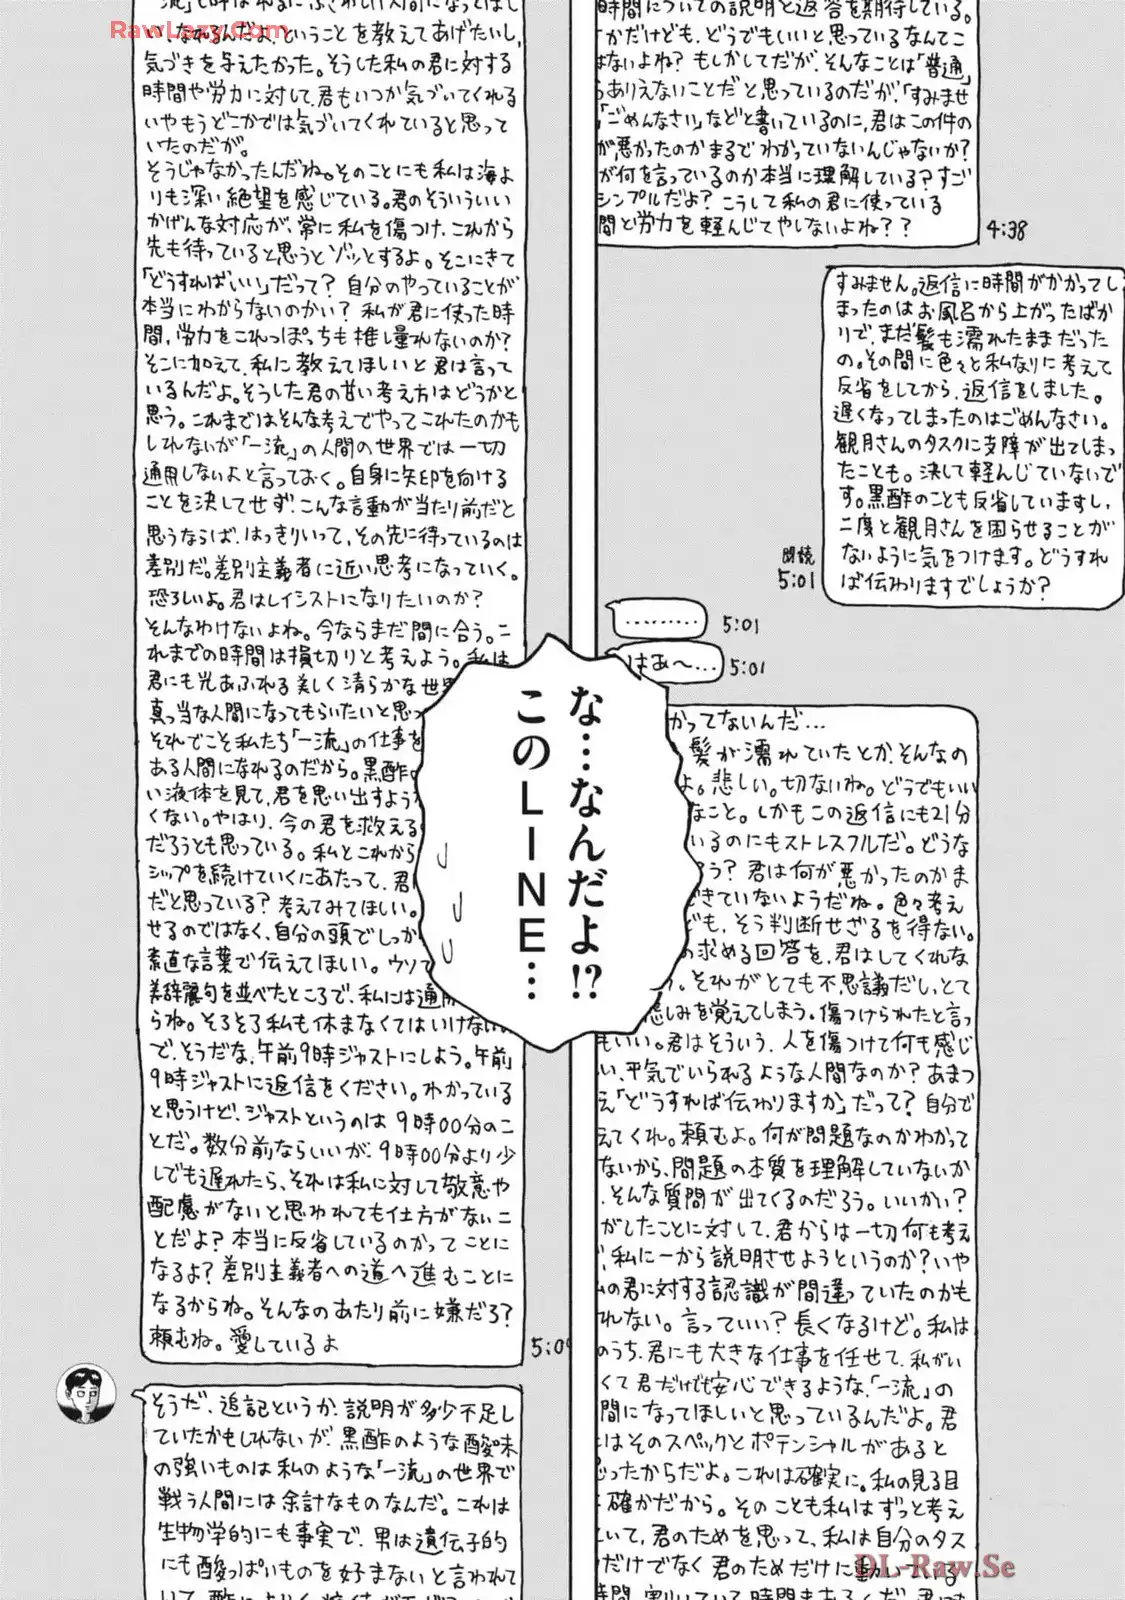 時間についての説明と返答を期待している。
かだけども、どうでもいいと思っているなんてこ
はないよね？もしかしてだが、そんなことは「普通」
ありえないことだと思っているのだが、「すみませ
「ごめんなさい」などと書いているのに、君はこの件の
が悪かったのかまるでわかっていないんじゃないか？
が何を言っているのか本当に理解している？すご
シンプルだよ？こうして私の君に使っている
間と労力を軽んじてやしないよね？？
4:38
すみません。返信に時間がかかってし
まったのはお風呂から上がったばか
りで、まだ髪も濡れたままだった
の。その間に色々と私なりに考えて
反省をしてから、返信をしました。
遅くなってしまったのはごめんなさい。
観月さんのタスクに支障が出てしまっ
たことも。決して軽んじていないで
す。黒酢のことも反省していますし、
二度と観月さんを困らせることが
ないように気をつけます。どうすれ
ば伝わりますでしょうか？
既読
5:01
………
5:01
はあ〜…
5:01
かってないんだ…
髪が濡れていたとか、そんなの
よ。悲しい。切ないね。どうでもいい
なこと。しかもこの返信にも21分
いるのにもストレスフルだ。どうな
う？君は何が悪かったのかま
できていないようだね。色々考え
ども、そう判断せざるを得ない。
の求める回答を、君はしてくれな
。それがとても不思議だし、とて
悲しみを覚えてしまう。傷つけられたと言っ
もいい。君はそういう、人を傷つけて何も感じ
い、平気でいられるような人間なのか？あまつ
え「どうすれば伝わりますか」だって？自分で
えてくれ。頼むよ。何が問題なのかわかって
ないから、問題の本質を理解していないか
、そんな質問が出てくるのだろう。いいかい？
がしたことに対して、君からは一切何も考え
、私に一から説明させようというのか？いや
の君に対する認識が間違っていたのかも
れない。言っていい？長くなるけど。私は
のうち、君にも大きな仕事を任せて、私がい
くて君だけでも安心できるような、「一流」の
間になってほしいと思っているんだよ。君
はそのスペックとポテンシャルがあると
ったからだよ。これは確実に。私の見る目
確かだから。そのことも私はずっと考え
いて、君のためを思って、私は自分のタス
だけでなく君のためだけに動いている
時間、割いている時間もあるくだ。
な…なんだよ!?
このLINE…
い、なれるんだよ、ということを教えてあげたいし、
気づきを与えたかった。そうした私の君に対する
時間や労力に対して、君もいつか気づいてくれる
いやもうどこかでは気づいてくれていると思って
いたのだが。
そうじゃなかったんだね。そのことにも私は海よ
りも深い絶望を感じている。君のそういういい
かげんな対応が、常に私を傷つけ、これから
先も待っていると思うとゾッとするよ。そこにきて
「どうすればいい」だって？自分のやっていることが
本当にわからないのかい？私が君に使った時
間、労力をこれっぽっちも推し量れないのか？
そこに加えて、私に教えてほしいと君は言って
いるんだよ。そうした君の甘い考え方はどうかと
思う。これまではそんな考えでやってこれたのかも
しれないが「一流」の人間の世界では一切
通用しないよと言っておく。自身に矢印を向ける
ことを決してせず、こんな言動が当たり前だと
思うならば、はっきりいって、その先に待っているのは
差別だ。差別主義者に近い思考になっていく。
恐ろしいよ。君はレイシストになりたいのか？
そんなわけないよね。今ならまだ間に合う。こ
れまでの時間は損切りと考えよう。私は
君にも光あふれる美しく清らかな世界
真っ当な人間になってもらいたいと思っ
それでこそ私たち「一流」の仕事を
ある人間になれるのだから。黒酢
い液体を見て、君を思い出すような
くない。やはり、今の君を救える
だろうとも思っている。私とこれから
シップを続けていくにあたって、君
だと思っている？考えてみてほしい。
せるのではなく、自分の頭でしっか
素直な言葉で伝えてほしい。ウソ
美辞麗句を並べたところで、私には通用
らね。そろそろ私も休まなくてはいけない
で、そうだな、午前9時ジャストにしよう。午前
9時ジャストに返信をください。わかっている
と思うけど、ジャストというのは9時00分のこ
とだ。数分前ならいいが、9時00分より少
しでも遅れたら、それは私に対して敬意や
配慮がないと思われても仕方がないこ
とだよ？本当に反省しているのかってことに
なるよ？差別主義者への道へ進むことに
なるからね。そんなのあたり前に嫌だろ？
頼むね。愛しているよ
5:09
そうだ、追記というか、説明が多少不足し
ていたかもしれないが、黒酢のような酸味
の強いものは私のような「一流」の世界で
戦う人間には余計なものなんだ。これは
生物学的にも事実で、男は遺伝子的
にも酸っぱいものを好まないと言われて
RawLazy.Com
DL-Raw.Se